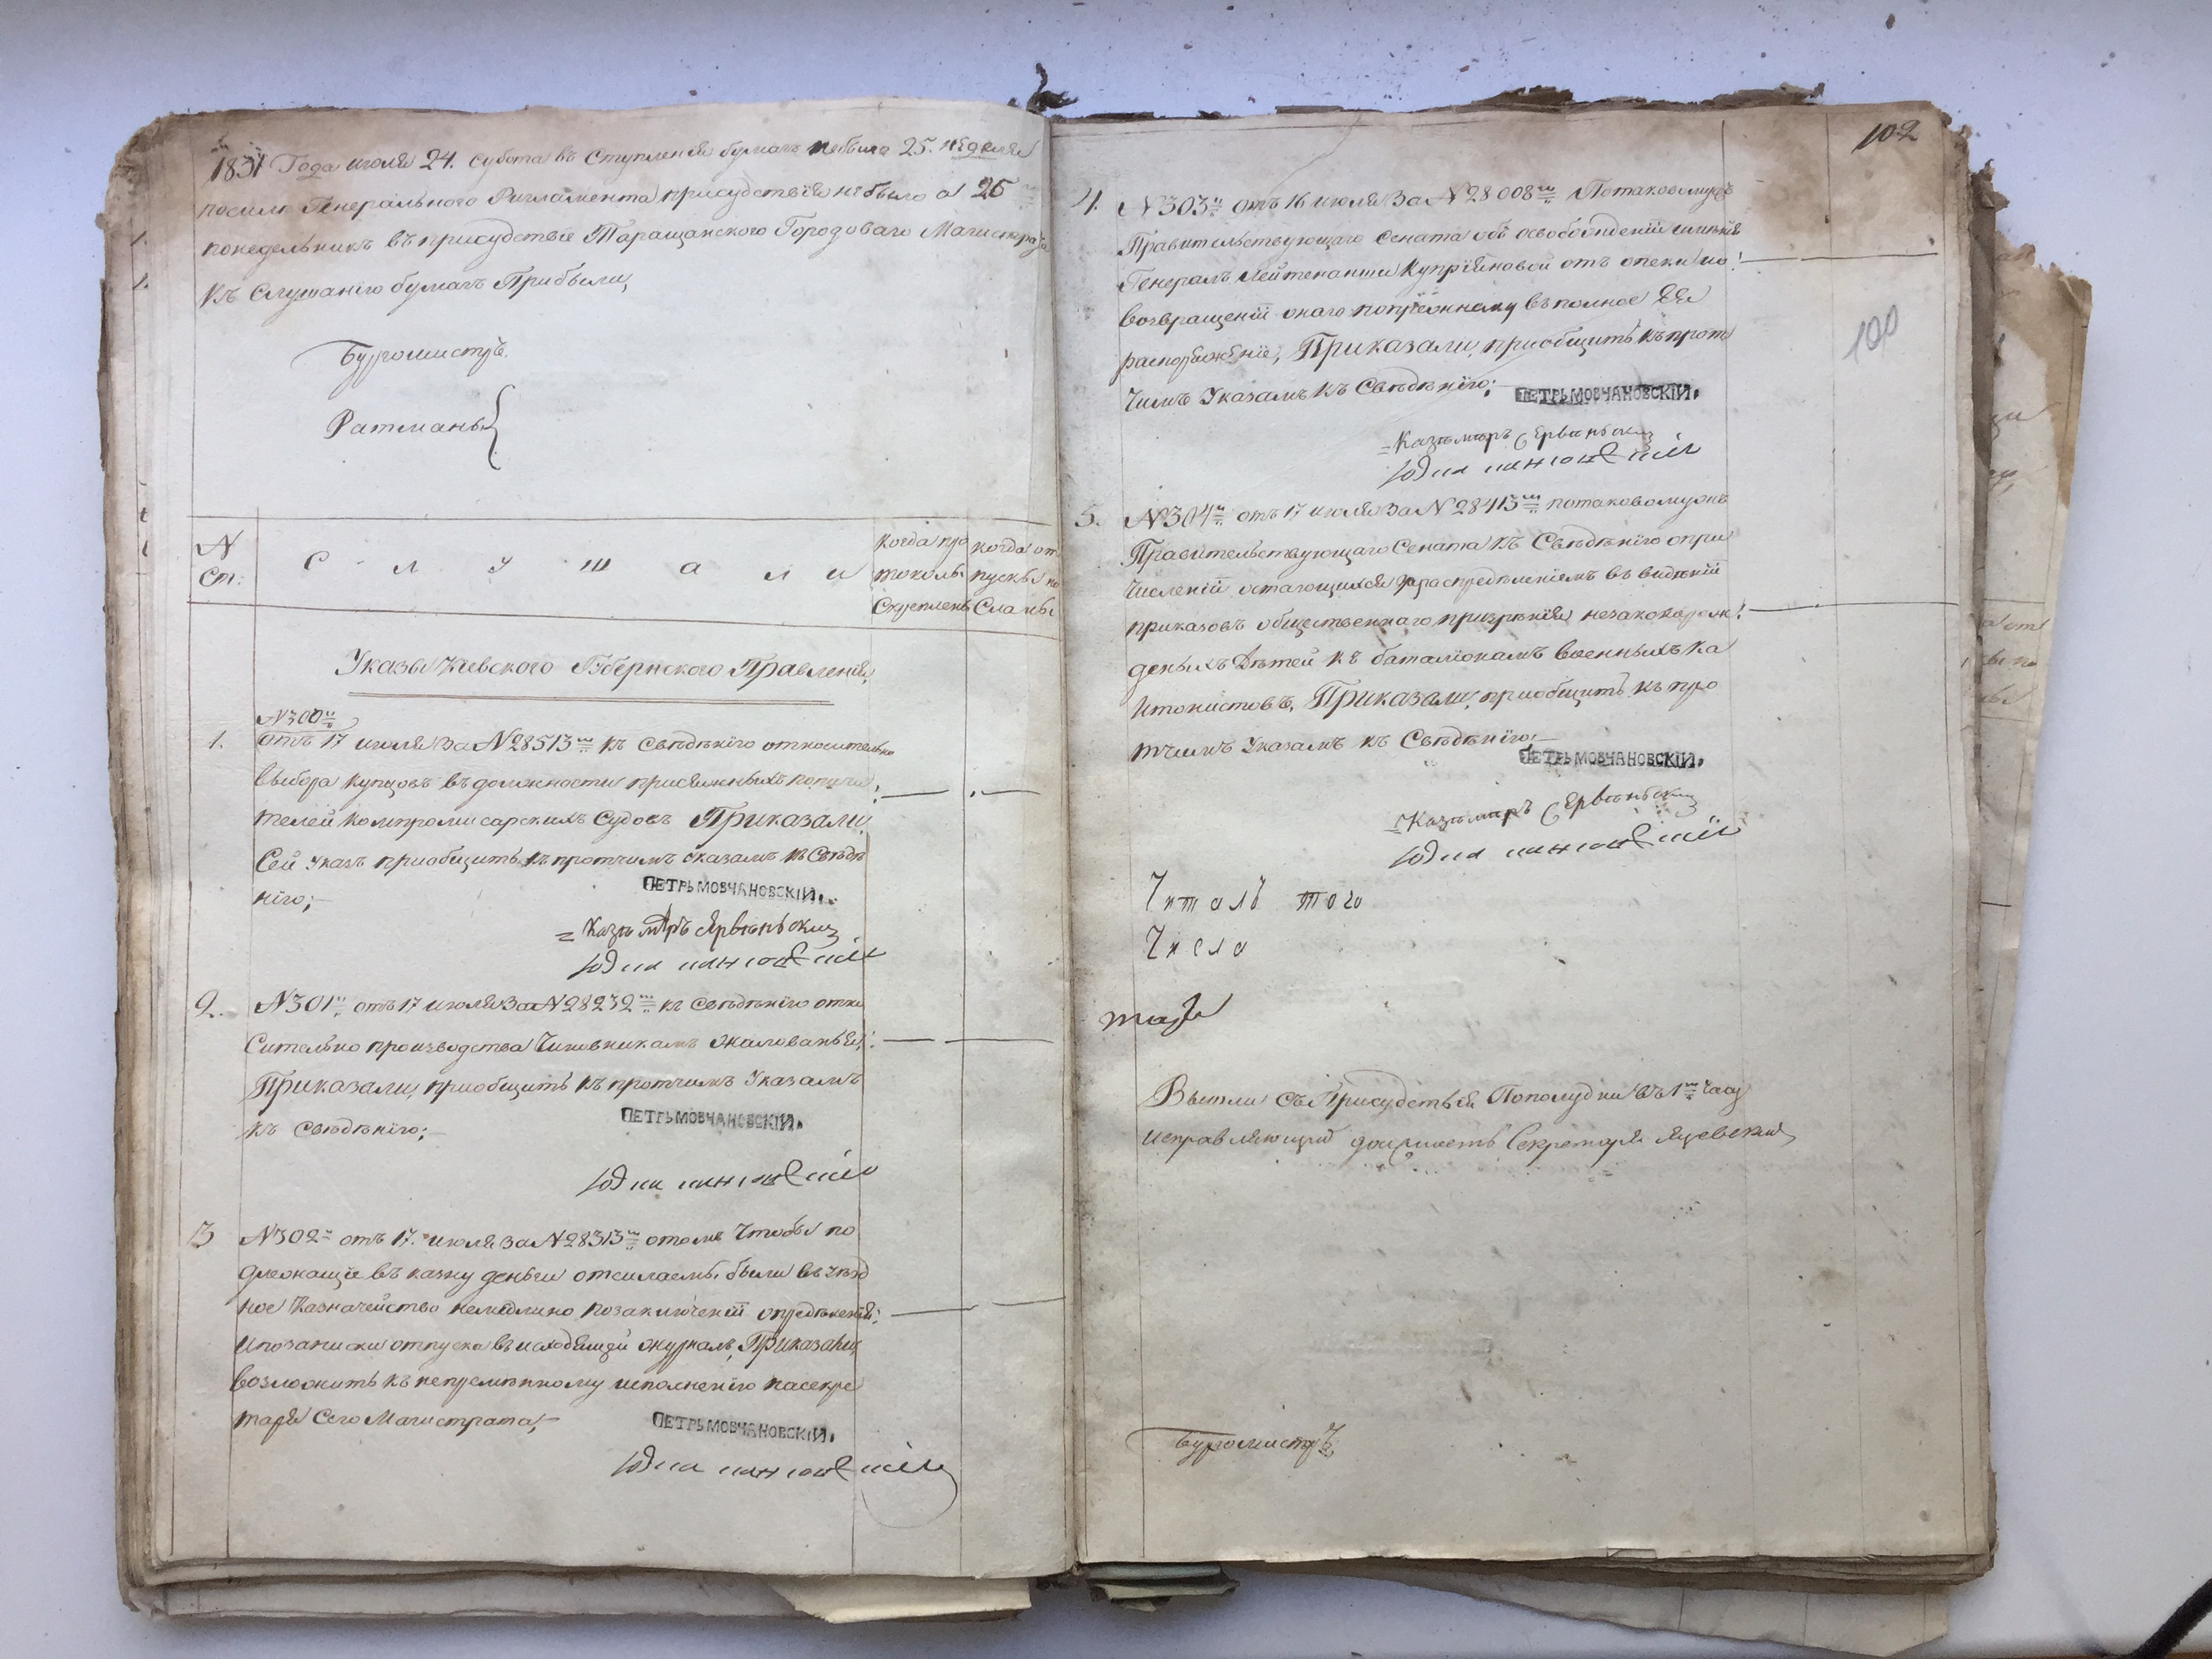 1831 Года июля 24. субота въ Ступленія бумагъ небыло 25. неделя
посилѣ Генеральнаго Регламента присудствія небыло а 26
понедельникъ въ присудствіе Таращанского Городоваго Магистрата
къ Слушанію бумагъ Прибыли,
Бургомистръ.
Ратманы
N Ст:
С л у ш а л и
когда про токолъ Скрепленъ
когда от пускъ по Сланы
Указы Киевского Губернского Правленія,
N300й
1. отъ 17 июля За N28513мъ къ Свѣдѣнію относительно
выбора купцовъ въ должности присяжныхъ попечи
телей компромисарскихъ Судовъ Приказали,
Сей указъ приобщить къ протчимъ Указамъ къ Свѣдѣ
нію;
ПЕТРЬ МОВЧАНОВСКІЙ.
2. N301й отъ 17 июля За N28232мъ къ Свѣдѣнію отно
Сительно производства Чиновникамъ жалованья,
Приказали, приобщить къ протчимъ Указамъ
къ Свѣдѣнію;
ПЕТРЬ МОВЧАНОВСКІЙ.
3 N302й отъ 17. июля За N28313мъ отомъ Чтобы по
длежащіе въ казну деньги отсилаемы были въ Уезд
ное Казначейство немедлино позаключеніи опредѣленій;
изаписки отпуска въ исходящій журналъ, Приказали,
возложить къ непремѣнному исполненію насекре
таря Сего Магистрата,
ПЕТРЬ МОВЧАНОВСКІЙ.
102
100
4. N303й отъ 16 июля За N28008мъ Потаковомужъ
Правительствующаго Сената объ освобожденіи имѣнія
Генералъ Лейтенанши Купріяновой отъ опеки ио
возвращеніи онаго попрежнему въ полное Ея
распоряженіе, Приказали, приобщить къ прот
Чимъ Указамъ къ Свѣдѣнію;
ПЕТРЬ МОВЧАНОВСКІЙ.
5. N304й отъ 17 июля За N28413мъ потаковомужъ
Правительствующаго Сената къ Свѣдѣнію опри
Численіи остающихся зараспредѣленіемъ въ видѣніи
приказовъ общественнаго призрѣнія незаконорож
деныхъ дѣтей къ баталіонамъ военныхъ ка
нтонистовъ, Приказали, приобщить къ про
тчимъ Указамъ къ Свѣдѣнію
ПЕТРЬ МОВЧАНОВСКІЙ.
Читалъ того
Числа
Вышли съ Присудствія Пополудни въ 1мъ часу
исправляющій должность Секретаря
Бургомистръ